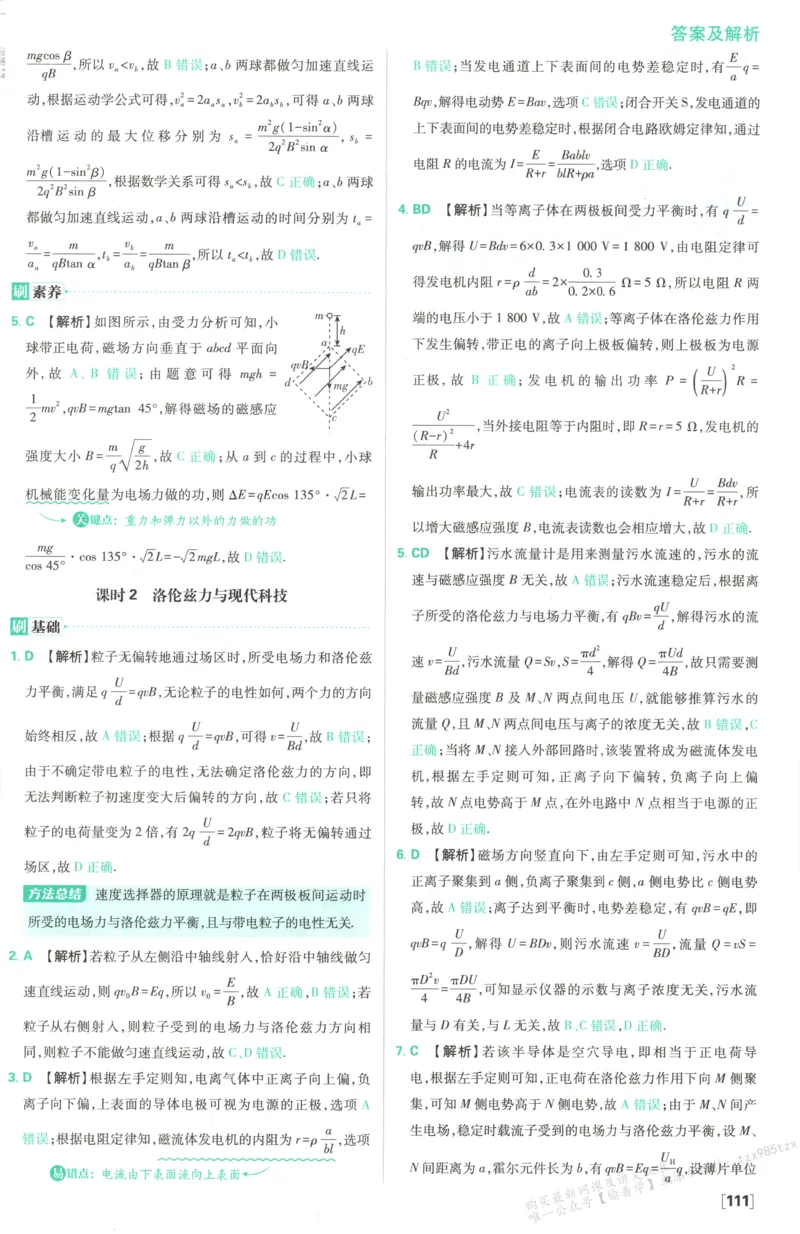 答案及解析
mgcos β/qB,所以 vₐ<v_b,故 B 错误;a、b 两球都做匀加速直线运
动,根据运动学公式可得,vₐ²=2aₐsₐ,v_b²=2a_b s_b,可得 a、b 两球
沿槽运动的最大位移分别为 sₐ = m²g(1-sin²α)/2q²B²sin α , s_b =
m²g(1-sin²β)/2q²B²sin β,根据数学关系可得 sₐ<s_b,故 C 正确;a、b 两球
都做匀加速直线运动,a、b 两球沿槽运动的时间分别为 tₐ =
vₐ/aₐ = m/qBtan α,t_b = v_b/a_b = m/qBtan β,所以 tₐ<t_b,故 D 错误.
刷 素养
5. C 【解析】如图所示,由受力分析可知,小
球带正电荷,磁场方向垂直于 abcd 平面向
外,故 A、B 错误;由题意可得 mgh =
1/2 mv²,qvB=mgtan 45°,解得磁场的磁感应
m
h
a
qE
qvB
d
mg
b
c
强度大小 B= m/q √(g/2h),故 C 正确;从 a 到 c 的过程中,小球
机械能变化量为电场力做的功,则 ΔE=qEcos 135°·√2L=
关键点:重力和弹力以外的力做的功
mg/cos 45°·cos 135°·√2L=-√2mgL,故 D 错误.
课时 2 洛伦兹力与现代科技
刷 基础
1. D 【解析】粒子无偏转地通过场区时,所受电场力和洛伦兹
力平衡,满足 q U/d =qvB,无论粒子的电性如何,两个力的方向
始终相反,故 A 错误;根据 q U/d =qvB,可得 v= U/Bd,故 B 错误;
由于不确定带电粒子的电性,无法确定洛伦兹力的方向,即
无法判断粒子初速度变大后偏转的方向,故 C 错误;若只将
粒子的电荷量变为 2 倍,有 2q U/d =2qvB,粒子将无偏转通过
场区,故 D 正确.
方法总结 速度选择器的原理就是粒子在两极板间运动时
所受的电场力与洛伦兹力平衡,且与带电粒子的电性无关.
2. A 【解析】若粒子从左侧沿中轴线射入,恰好沿中轴线做匀
速直线运动,则 qv₀B=Eq,所以 v₀= E/B,故 A 正确,B 错误;若
粒子从右侧射入,则粒子受到的电场力与洛伦兹力方向相
同,则粒子不能做匀速直线运动,故 C、D 错误.
3. D 【解析】根据左手定则知,电离气体中正离子向上偏,负
离子向下偏,上表面的导体电极可视为电源的正极,选项 A
错误;根据电阻定律知,磁流体发电机的内阻为 r=ρ a/bl,选项
易错点:电流由下表面流向上表面
B 错误;当发电通道上下表面间的电势差稳定时,有 E/a q=
Bqv,解得电动势 E=Bav,选项 C 错误;闭合开关 S,发电通道的
上下表面间的电势差稳定时,根据闭合电路欧姆定律知,通过
电阻 R 的电流为 I= E/(R+r) = Bablv/(blR+ρa),选项 D 正确.
4. BD 【解析】当等离子体在两极板间受力平衡时,有 q U/d =
qvB,解得 U=Bdv=6×0.3×1 000 V=1 800 V,由电阻定律可
得发电机内阻 r=ρ d/ab =2× 0.3/(0.2×0.6) Ω=5 Ω,所以电阻 R 两
端的电压小于 1 800 V,故 A 错误;等离子体在洛伦兹力作用
下发生偏转,带正电的离子向上极板偏转,则上极板为电源
正极,故 B 正确;发电机的输出功率 P = (U/(R+r))² R =
U²/((R-r)²/R+4r),当外接电阻等于内阻时,即 R=r=5 Ω,发电机的
输出功率最大,故 C 错误;电流表的读数为 I= U/(R+r) = Bdv/(R+r),所
以增大磁感应强度 B,电流表读数也会相应增大,故 D 正确.
5. CD 【解析】污水流量计是用来测量污水流速的,污水的流
速与磁感应强度 B 无关,故 A 错误;污水流速稳定后,根据离
子所受的洛伦兹力与电场力平衡,有 qBv= qU/d,解得污水的流
速 v= U/Bd,污水流量 Q=Sv,S= πd²/4,解得 Q= πUd/4B,故只需要测
量磁感应强度 B 及 M、N 两点间电压 U,就能够推算污水的
流量 Q,且 M、N 两点间电压与离子的浓度无关,故 B 错误,C
正确;当将 M、N 接入外部回路时,该装置将成为磁流体发电
机,根据左手定则可知,正离子向下偏转,负离子向上偏
转,故 N 点电势高于 M 点,在外电路中 N 点相当于电源的正
极,故 D 正确.
6. D 【解析】磁场方向竖直向下,由左手定则可知,污水中的
正离子聚集到 a 侧,负离子聚集到 c 侧,a 侧电势比 c 侧电势
高,故 A 错误;离子达到平衡时,电势差稳定,有 qvB=qE,即
qvB=q U/D,解得 U=BDv,则污水流速 v= U/BD,流量 Q=vS=
πD²v/4 = πDU/4B,可知显示仪器的示数与离子浓度无关,污水流
量与 D 有关,与 L 无关,故 B、C 错误,D 正确.
7. C 【解析】若该半导体是空穴导电,即相当于正电荷导
电,根据左手定则可知,正电荷在洛伦兹力作用下向 M 侧聚
集,可知 M 侧电势高于 N 侧电势,故 A 错误;由于 M、N 间产
生电场,稳定时载流子受到的电场力与洛伦兹力平衡,设 M、
N 间距离为 a,霍尔元件长为 b,有 qvB=Eq= U_H/a q,设薄片单位
购买最新网课及讲义
唯一公众号【偷着学】
tzx985tzx
[111]